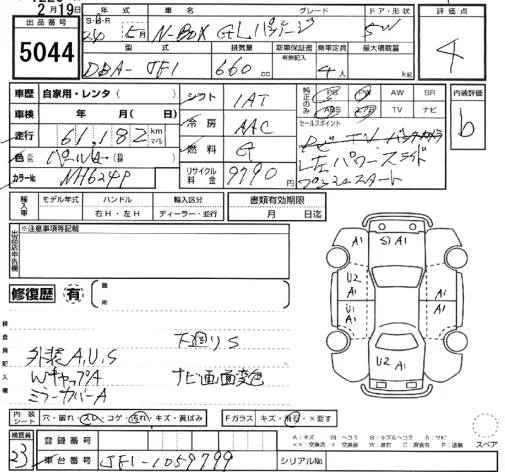 2月19日
出品番号
5044
S・H・R 年式 車名 グレード ドア・形状
24年 5月 N-BOX GLパッケージ 5W
型式 排気量 新車保証書 乗車定員 最大積載量
有無記入
DBA-JF1 660cc 4人 kg
評価点
4
車歴 自家用・レンタ( )
車検 年 月( )日
走行 61,182 km マイル
色
パールM
カラーNo. NH624P
シフト 1AT
冷房 AAC
燃料 G
リサイクル料金 9790円
純正のみ PS PW AW SR
ABS エアB TV ナビ
セールスポイント
ナビ TV バックカメラ
左パワースライド
プッシュスタート
内装評価
b
輸入車 モデル年式 ハンドル 輸入区分
右H・左H ディーラー・並行
書類有効期限
月 日迄
※注意事項等記載
修復歴 有 箇所
検査員記入欄
下廻りS
外装A,U,S
WキャップA ナビ画面変色
ミラーカバーA
内装シート 穴・破れ・スレ・コゲ・汚れ・キズ・黄ばみ Fガラス キズ・飛石・×要す
検査員
23
登録番号
車台番号 JF1-1059799 シリアルNo.
A1 S1 A1 A1
U2
A1 A1
U1
A1 A1
U2 A1
A:キズ U:ヘコミ B:キズ&ヘコミ S:サビ
××:交換済 ×:交換要 W:波有 C:腐食有 P:塗装
スペア